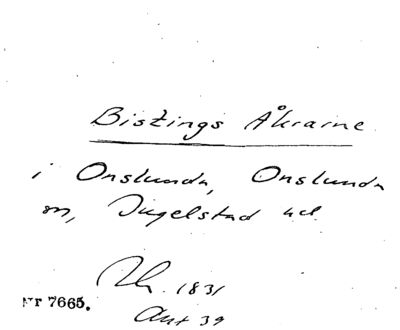 Bistings Åkrarne
i Onslunda, Onslunda
sn, Ingelstad hd.
1831
Akt 39
Nr 7665.